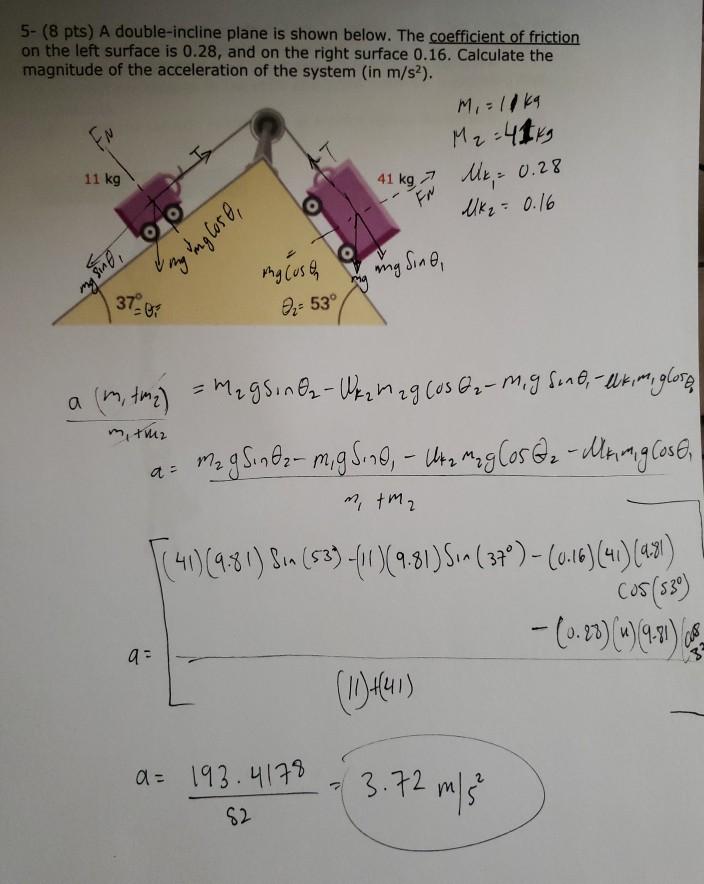 5- (8 pts) A double-incline plane is shown below. The coefficient of friction
on the left surface is 0.28, and on the right surface 0.16. Calculate the
magnitude of the acceleration of the system (in m/s²).
M₁ = 11 kg
M₂ = 41 kg
μk₁ = 0.28
μk₂ = 0.16
FN
T
T
11 kg
41 kg
FN
mg sinθ₁
mg
mg cosθ₁
mg cosθ₂
mg
mg sinθ₁
37° = θ₁
θ₂ = 53°
a (m₁+m₂) = m₂g sinθ₂ - μk₂m₂g cosθ₂ - m₁g sinθ₁ - μk₁m₁g cosθ₁
m₁+m₂
a = m₂g sinθ₂ - m₁g sinθ₁ - μk₂m₂g cosθ₂ - μk₁m₁g cosθ₁
m₁ + m₂
(41)(9.81) Sin(53°) - (11)(9.81) Sin(37°) - (0.16)(41)(9.81)
cos(53°)
- (0.28)(11)(9.81)
a =
(11)+(41)
a = 193.4178 = 3.72 m/s²
52